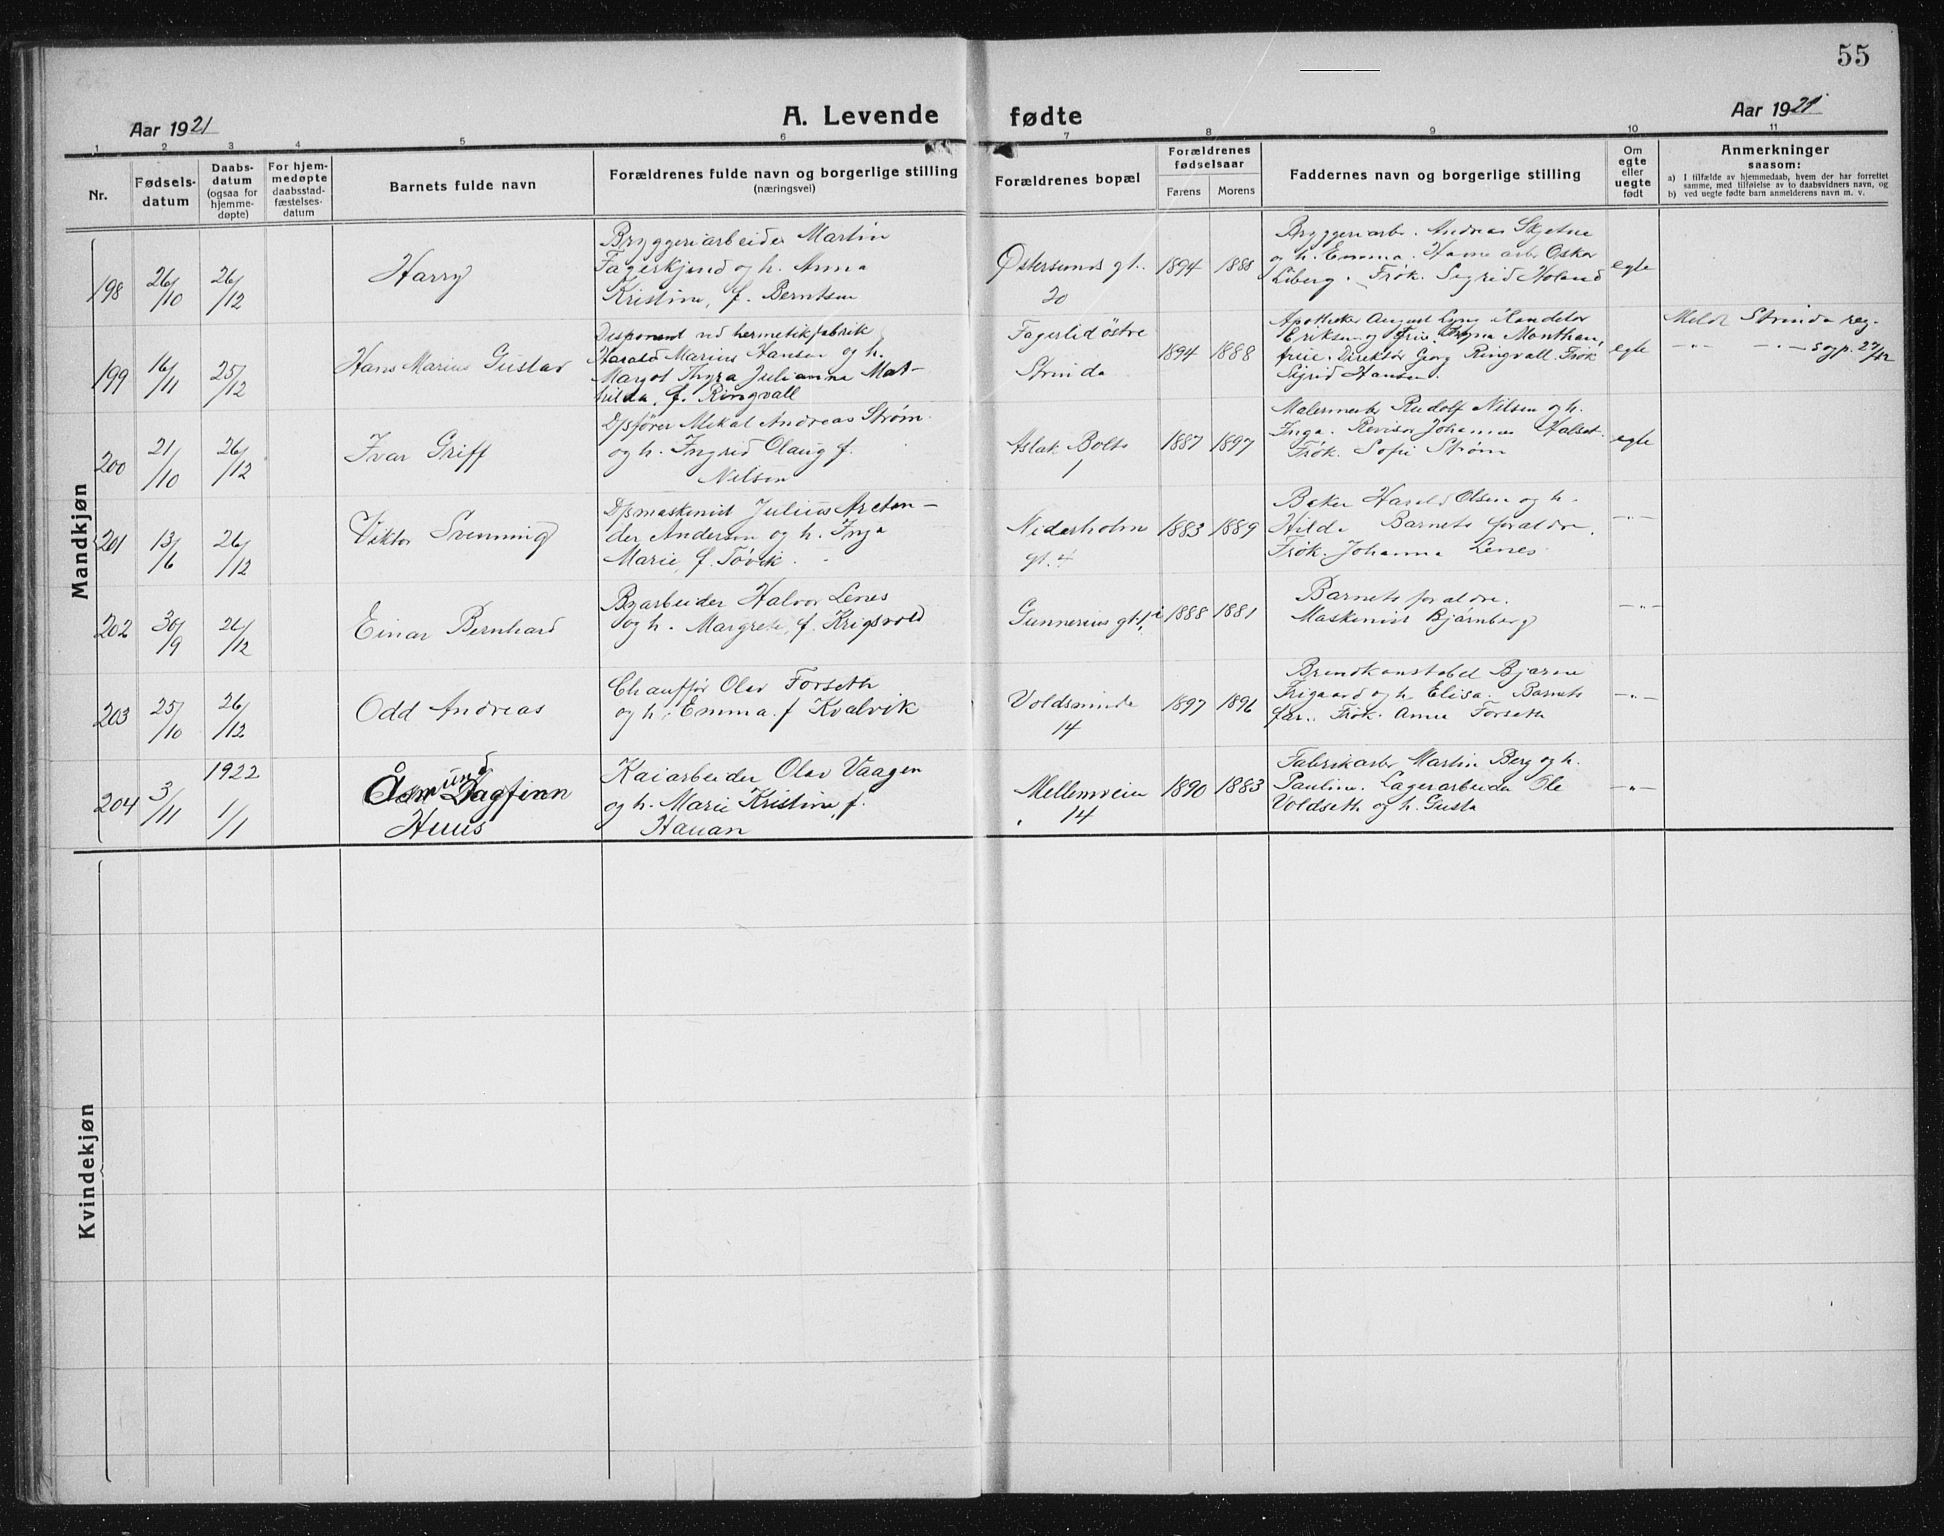 55
Aar 1921
A. Levende fødte
Aar 1921
1 2 3 4 5 6 7 8 9 10 11
Nr.
Fødsels-
datum
Daabs-
datum
(ogsaa for
hjemme-
døpte)
For hjem-
medøpte
daabsstad-
fæstelses-
datum
Barnets fulde navn
Forældrenes fulde navn og borgerlige stilling
(næringsvei)
Forældrenes bopæl
Forældrenes
fødselsaar
Farens Morens
Faddernes navn og borgerlige stilling
Om
egte
eller
uegte
født
Anmerkninger
saasom:
a) I tilfælde av hjemmedaab, hvem der har forrettet
samme, med tilføielse av to daabsvidners navn, og
b) ved uegte fødte barn anmelderens navn m. v.
Mandkjøn
198
26/10
26/12
Harry
Bryggeriarbeider Martin
Fagerskjend og h. Anna
Kristine, f. Berntsen
Østersunds gt.
20
1894 1888
Bryggeriarb. Andreas Skjetne
og h. Emma. Havnearb. Oskar
Liberg. Frøk. Sigrid Holand
egte
199
16/11
25/12
Hans Marius Gustav
Disponent ved hermetikfabrik
Harald Marius Hansen og h.
Margot Thyra Julianna Mat-
hilda, f. Ringvall
Fagerlid østre
Strinda
1894 1888
Apotheker August Lyng Handelsr
Eriksen og frue. Monthan,
frue. Direktør Georg Ringvall. Frøk
Sigrid Hansen.
egte
Meldt Strinda reg.
-"- -"- sogp. 27/12
200
21/10
26/12
Ivar Griff
D/sfører Mikal Andreas Strøm
og h. Ingrid Olaug f.
Nilsen
Aslak Bolts
1
1887 1897
Malermester Rudolf Nilsen og h.
Inga. Revisor Johannes Halset.
Frøk. Sofie Strøm
egte
201
13/6
26/12
Viktor Svenning
D/smaskinist Julius
Anderson og h. Inga
Marie, f. Tøvik.
Nidarholm
gt. 4
1883 1889
Baker Harald Olsen og h.
Hilda Barnets forældre.
Frøk. Johanna Lenes
-"-
202
30/9
26/12
Einar Bernhard
Byarbeider Halvor Lenes
og h. Margrete, f. Krigsvold
Gunnerius gt. 1
1888 1881
Barnets forældre.
Maskinist Bjørnberg
-"-
203
25/10
26/12
Odd Andreas
Chauffør Olav Forseth
og h. Emma f. Kvalvik
Voldsminde
14
1897 1896
Brandkonstabel Bjarne
Frigaard og h. Elisa. Barnets
far. Frøk. Anna Forseth
-"-
204
3/11
1922
1/1
Åsmund Dagfinn
Huus
Kaiarbeider Olav Vaagen
og h. Marie Kristine, f.
Hauan
Mellemveien
14
1890 1883
Fabrikarb. Martin Berg og h.
Pauline. Lagerarbeider Ole
Voldseth og h. Gusta
-"-
Kvindekjøn